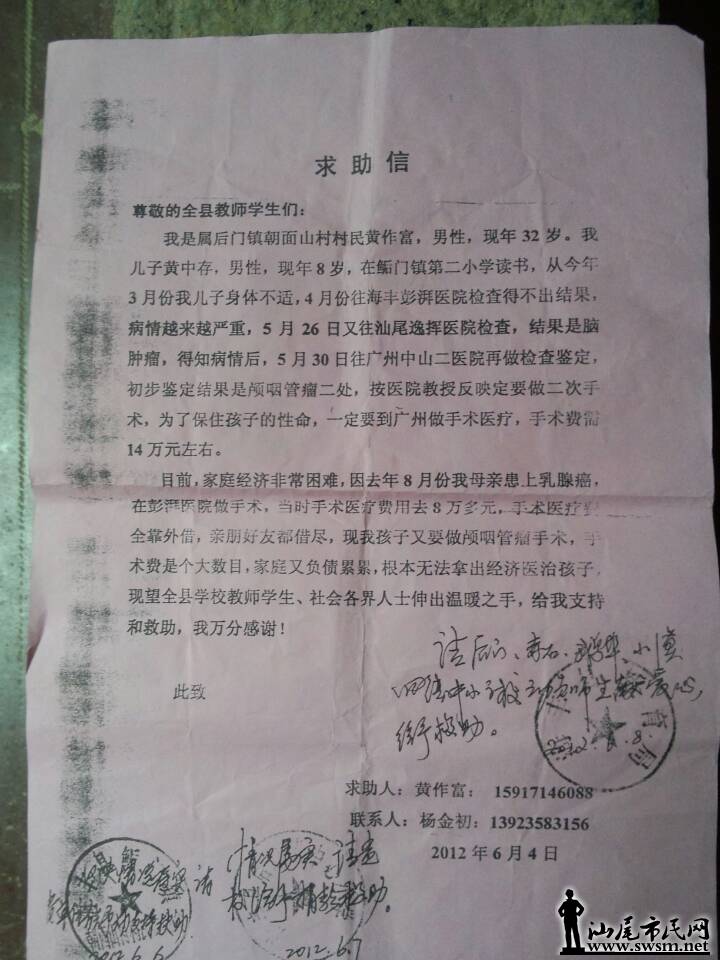 求助信
尊敬的全县教师学生们：
我是属后门镇朝面山村村民黄作富，男性，现年 32 岁。我
儿子黄中存，男性，现年 8 岁，在鲘门镇第二小学读书，从今年
3 月份我儿子身体不适，4 月份往海丰彭湃医院检查得不出结果，
病情越来越严重，5 月 26 日又往汕尾逸挥医院检查，结果是脑
肿瘤，得知病情后，5 月 30 日往广州中山二医院再做检查鉴定，
初步鉴定结果是颅咽管瘤二处，按医院教授反映定要做二次手
术，为了保住孩子的性命，一定要到广州做手术医疗，手术费需
14 万元左右。
目前，家庭经济非常困难，因去年 8 月份我母亲患上乳腺癌，
在彭湃医院做手术，当时手术医疗费用去 8 万多元，手术医疗费
全靠外借，亲朋好友都借尽，现我孩子又要做颅咽管瘤手术，手
术费是个大数目，家庭又负债累累，根本无法拿出经济医治孩子，
现望全县学校教师学生、社会各界人士伸出温暖之手，给我支持
和救助，我万分感谢！
此致
请后门、赤石、鹅埠、小漠
四镇中小学校动员师生献爱心，
给予救助。
求助人：黄作富： 15917146088
联系人：杨金初：13923583156
2012 年 6 月 4 日
情况属实，请
给予捐款救助。
2012.6.7
2012.6.6
汕尾市民网
www.swsm.net